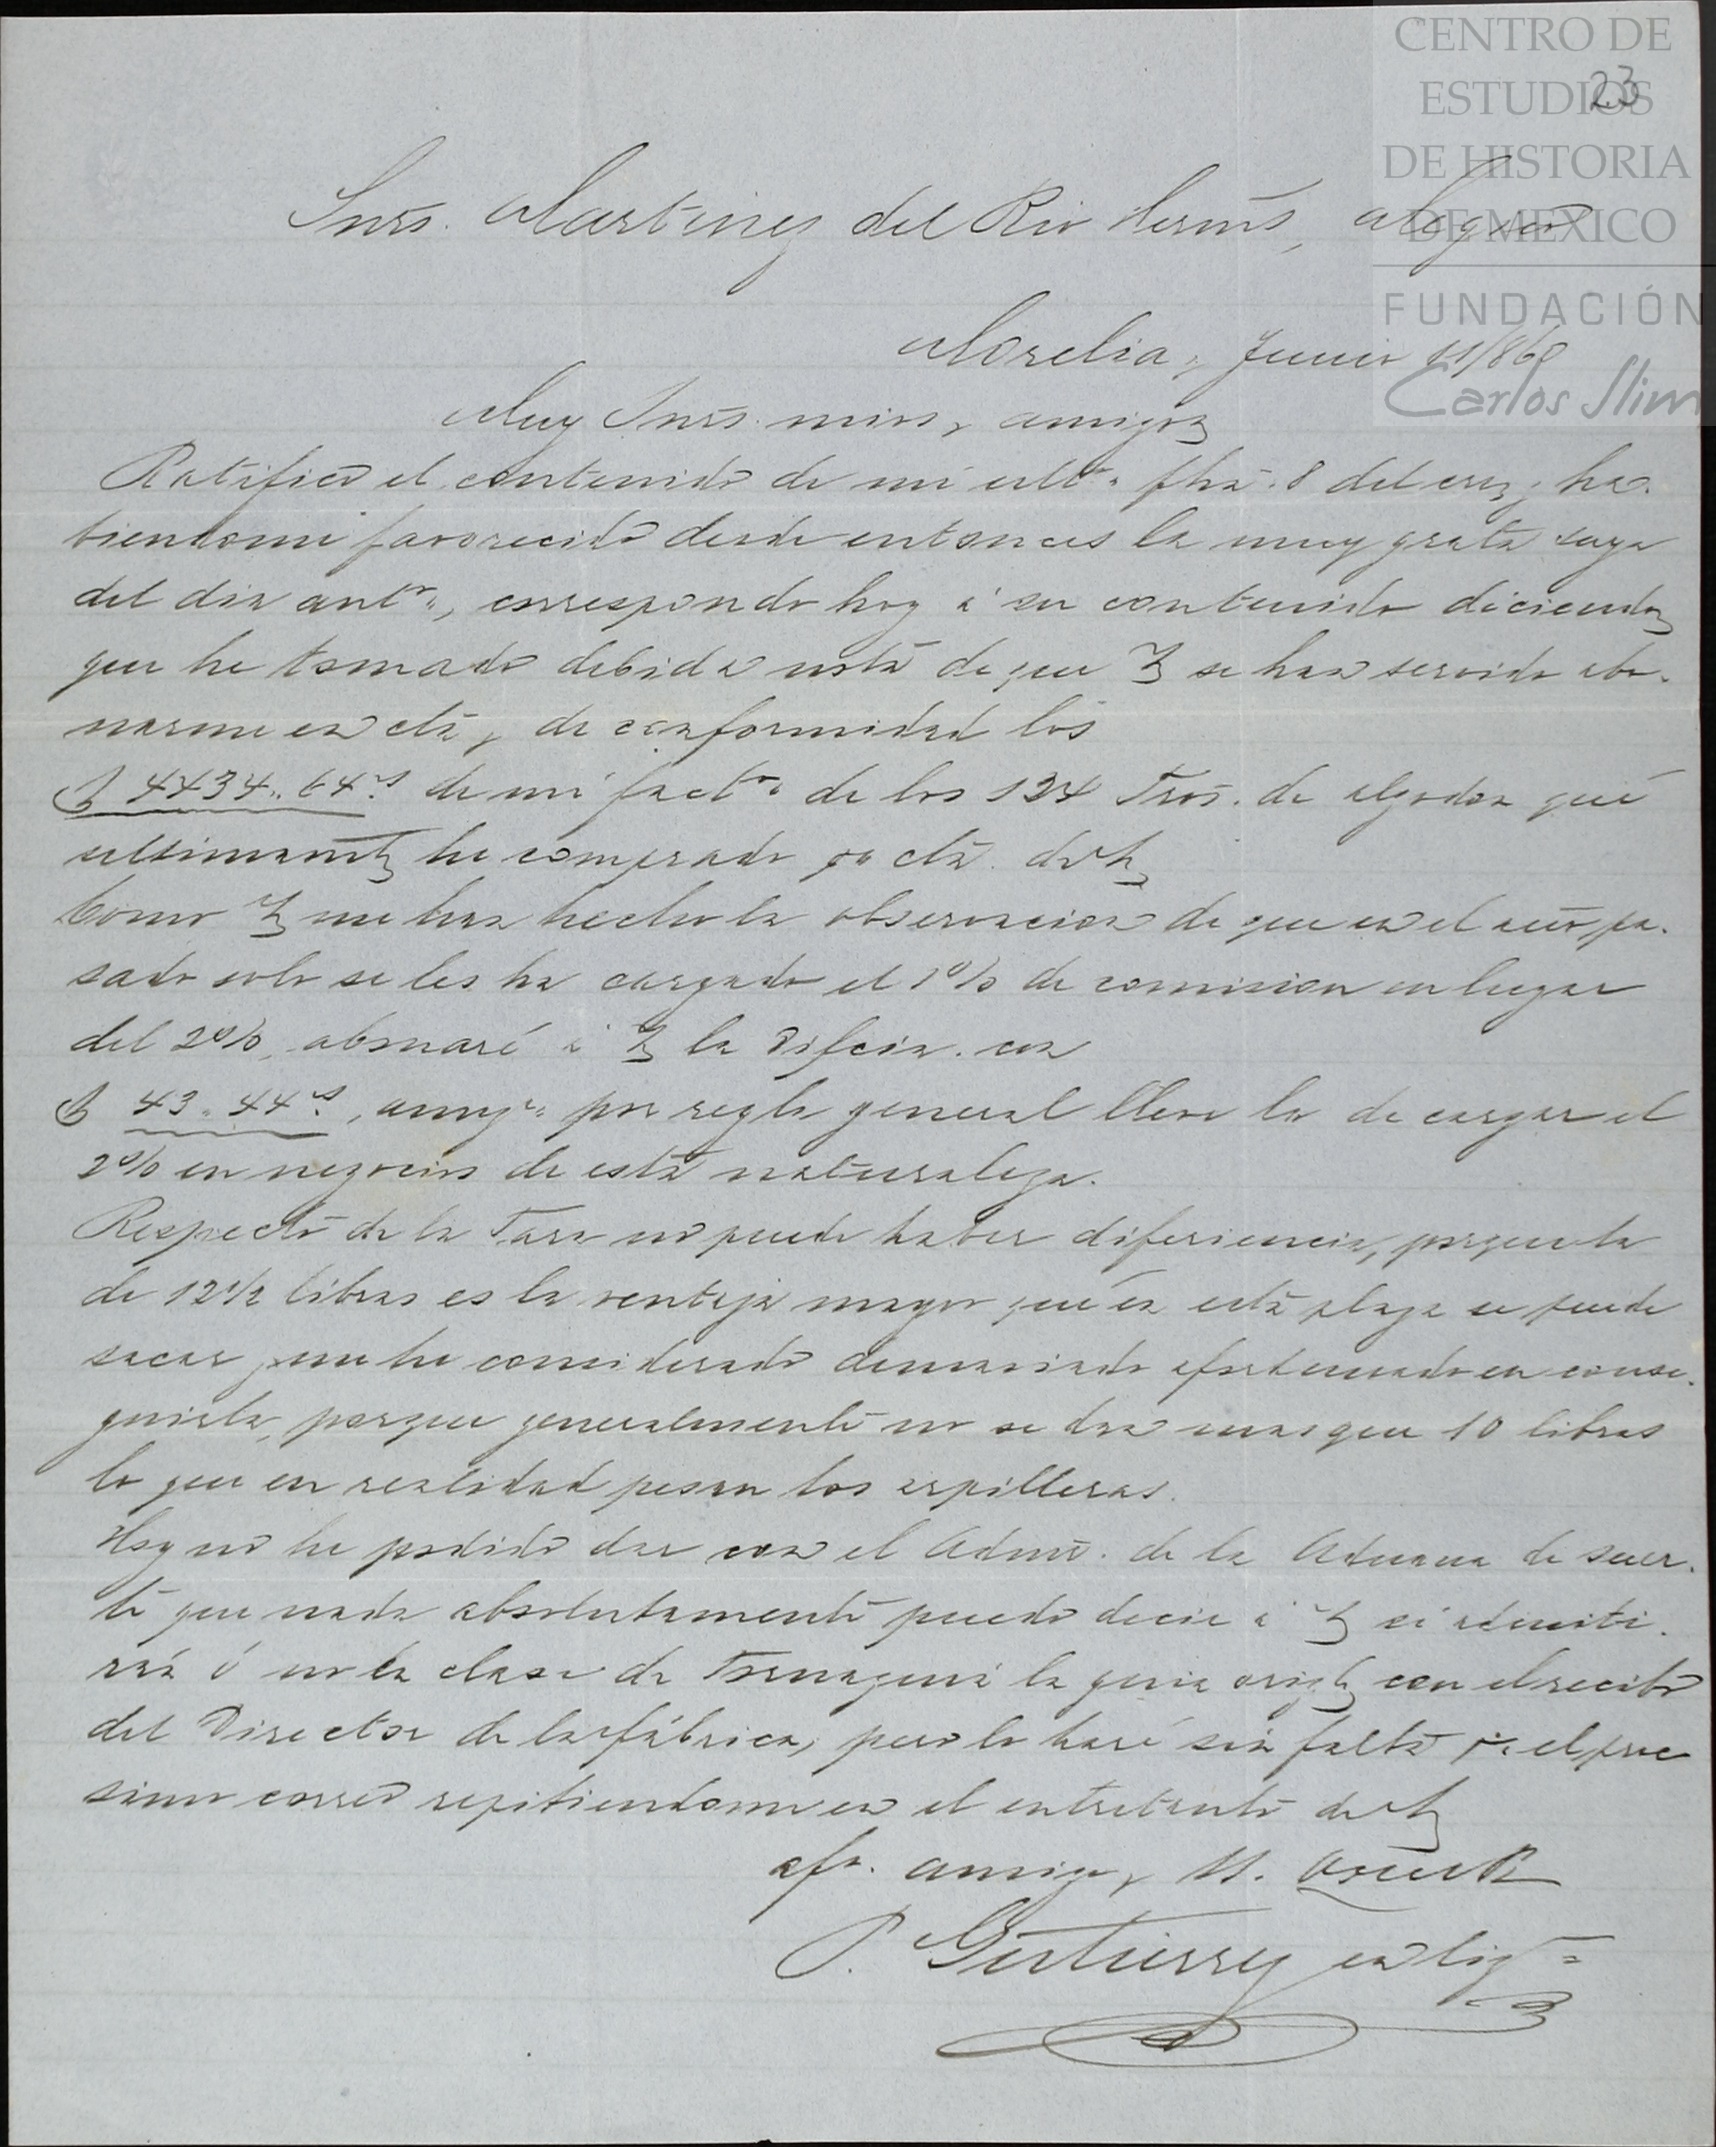 CENTRO DE
ESTUDIOS
DE HISTORIA
DE MEXICO
FUNDACIÓN
Carlos Slim
23
Snrs. Martinez del Rio Herms, Megico
Morelia, Junio 11/860
Muy Snrs. mios y amigos
Ratifico el contenido de mi ulta. fha. 8 del crrte; ha-
biendome favorecido desde entonces la muy grata suya
del dia antr., correspondo hoy á su contenido diciendo
que he tomado debida nota de que se han servido abo-
narme en cta. y de conformidad los
$ 4434.. 64 cs. de mi facta. de los 124 Tros. de algodon que
ultimamte he comprado pr. cta. de
Como me han hecho la observacion de que en el año pa-
sado solo se les ha cargado el 1% de comision en lugar
del 2%, abonaré á la Difcia. con
$ 43.. 44 cs., aunqe. por regla general llevo la de cargar el
2% en negocios de esta naturaleza.
Respecto de la Tara no puede haber diferiencia, porque la
de 12½ libras es la ventaja mayor que en esta plaza se puede
sacar y me he considerado demasiado afortunado en conse-
guirla, porque generalmente no se dan mas que 10 libras
lo que en realidad pesan los arpilleras.
Hoy no he podido dar con el Admor. de la Aduana de suer-
te que nada absolutamente puedo decir á si admiti-
rán ó no en clase de Tornaguia la guia origl con el recibo
del Director de la fábrica, pero lo haré sin falta pr. el pro-
simo correo repitiendome en el entretanto de
afo. amigo y S.
P. Gutierrez en liqn.